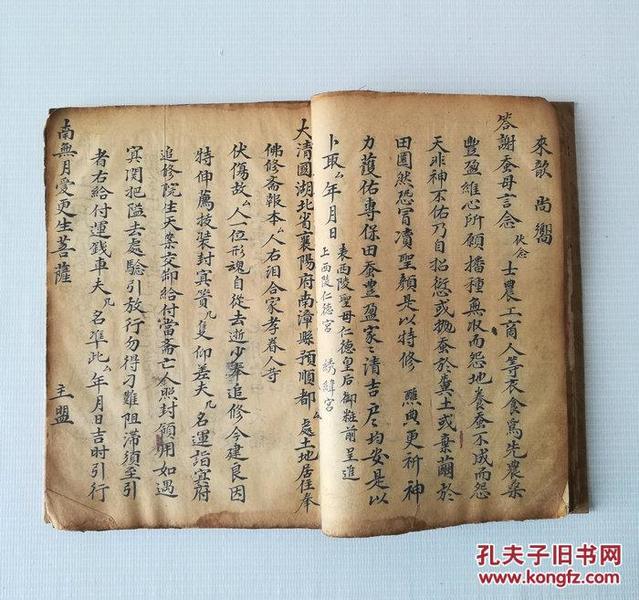 來歆 尚嚮
答謝蚕母言念 伏念 士農工商人等衣食為先農桑
豐盈維心所願播種無収而怨地養蚕不成而怨
天非神不佑乃自招愆或抛蚕於糞土或棄繭於
田園然恐冒瀆聖顔是以特修 醮典更祈 神
力護佑專保田蚕豐盈家々清吉戶々均安是以
卜取厶年月日 東西陵聖母仁德皇后御粧前呈進
上西陵仁德宮 綉緯宮
大清國湖北省襄陽府南漳縣預順都 厶處土地居住奉
佛修斋報本厶人右洎合家孝眷人等
伏傷故厶人一位形魂自從去逝少年追修今建良因
特伸薦拔裝封冥資几隻仰差夫几名運詣冥府
追修院生天案交卸給付當斋亡人照封領用如遇
冥関把隘去處驗引放行勿得刁難阻滞須至引
者右給付運錢車夫几名准此厶年月日吉時引行
南無月愛更生菩薩 主盟
孔夫子旧书网
www.kongfz.com